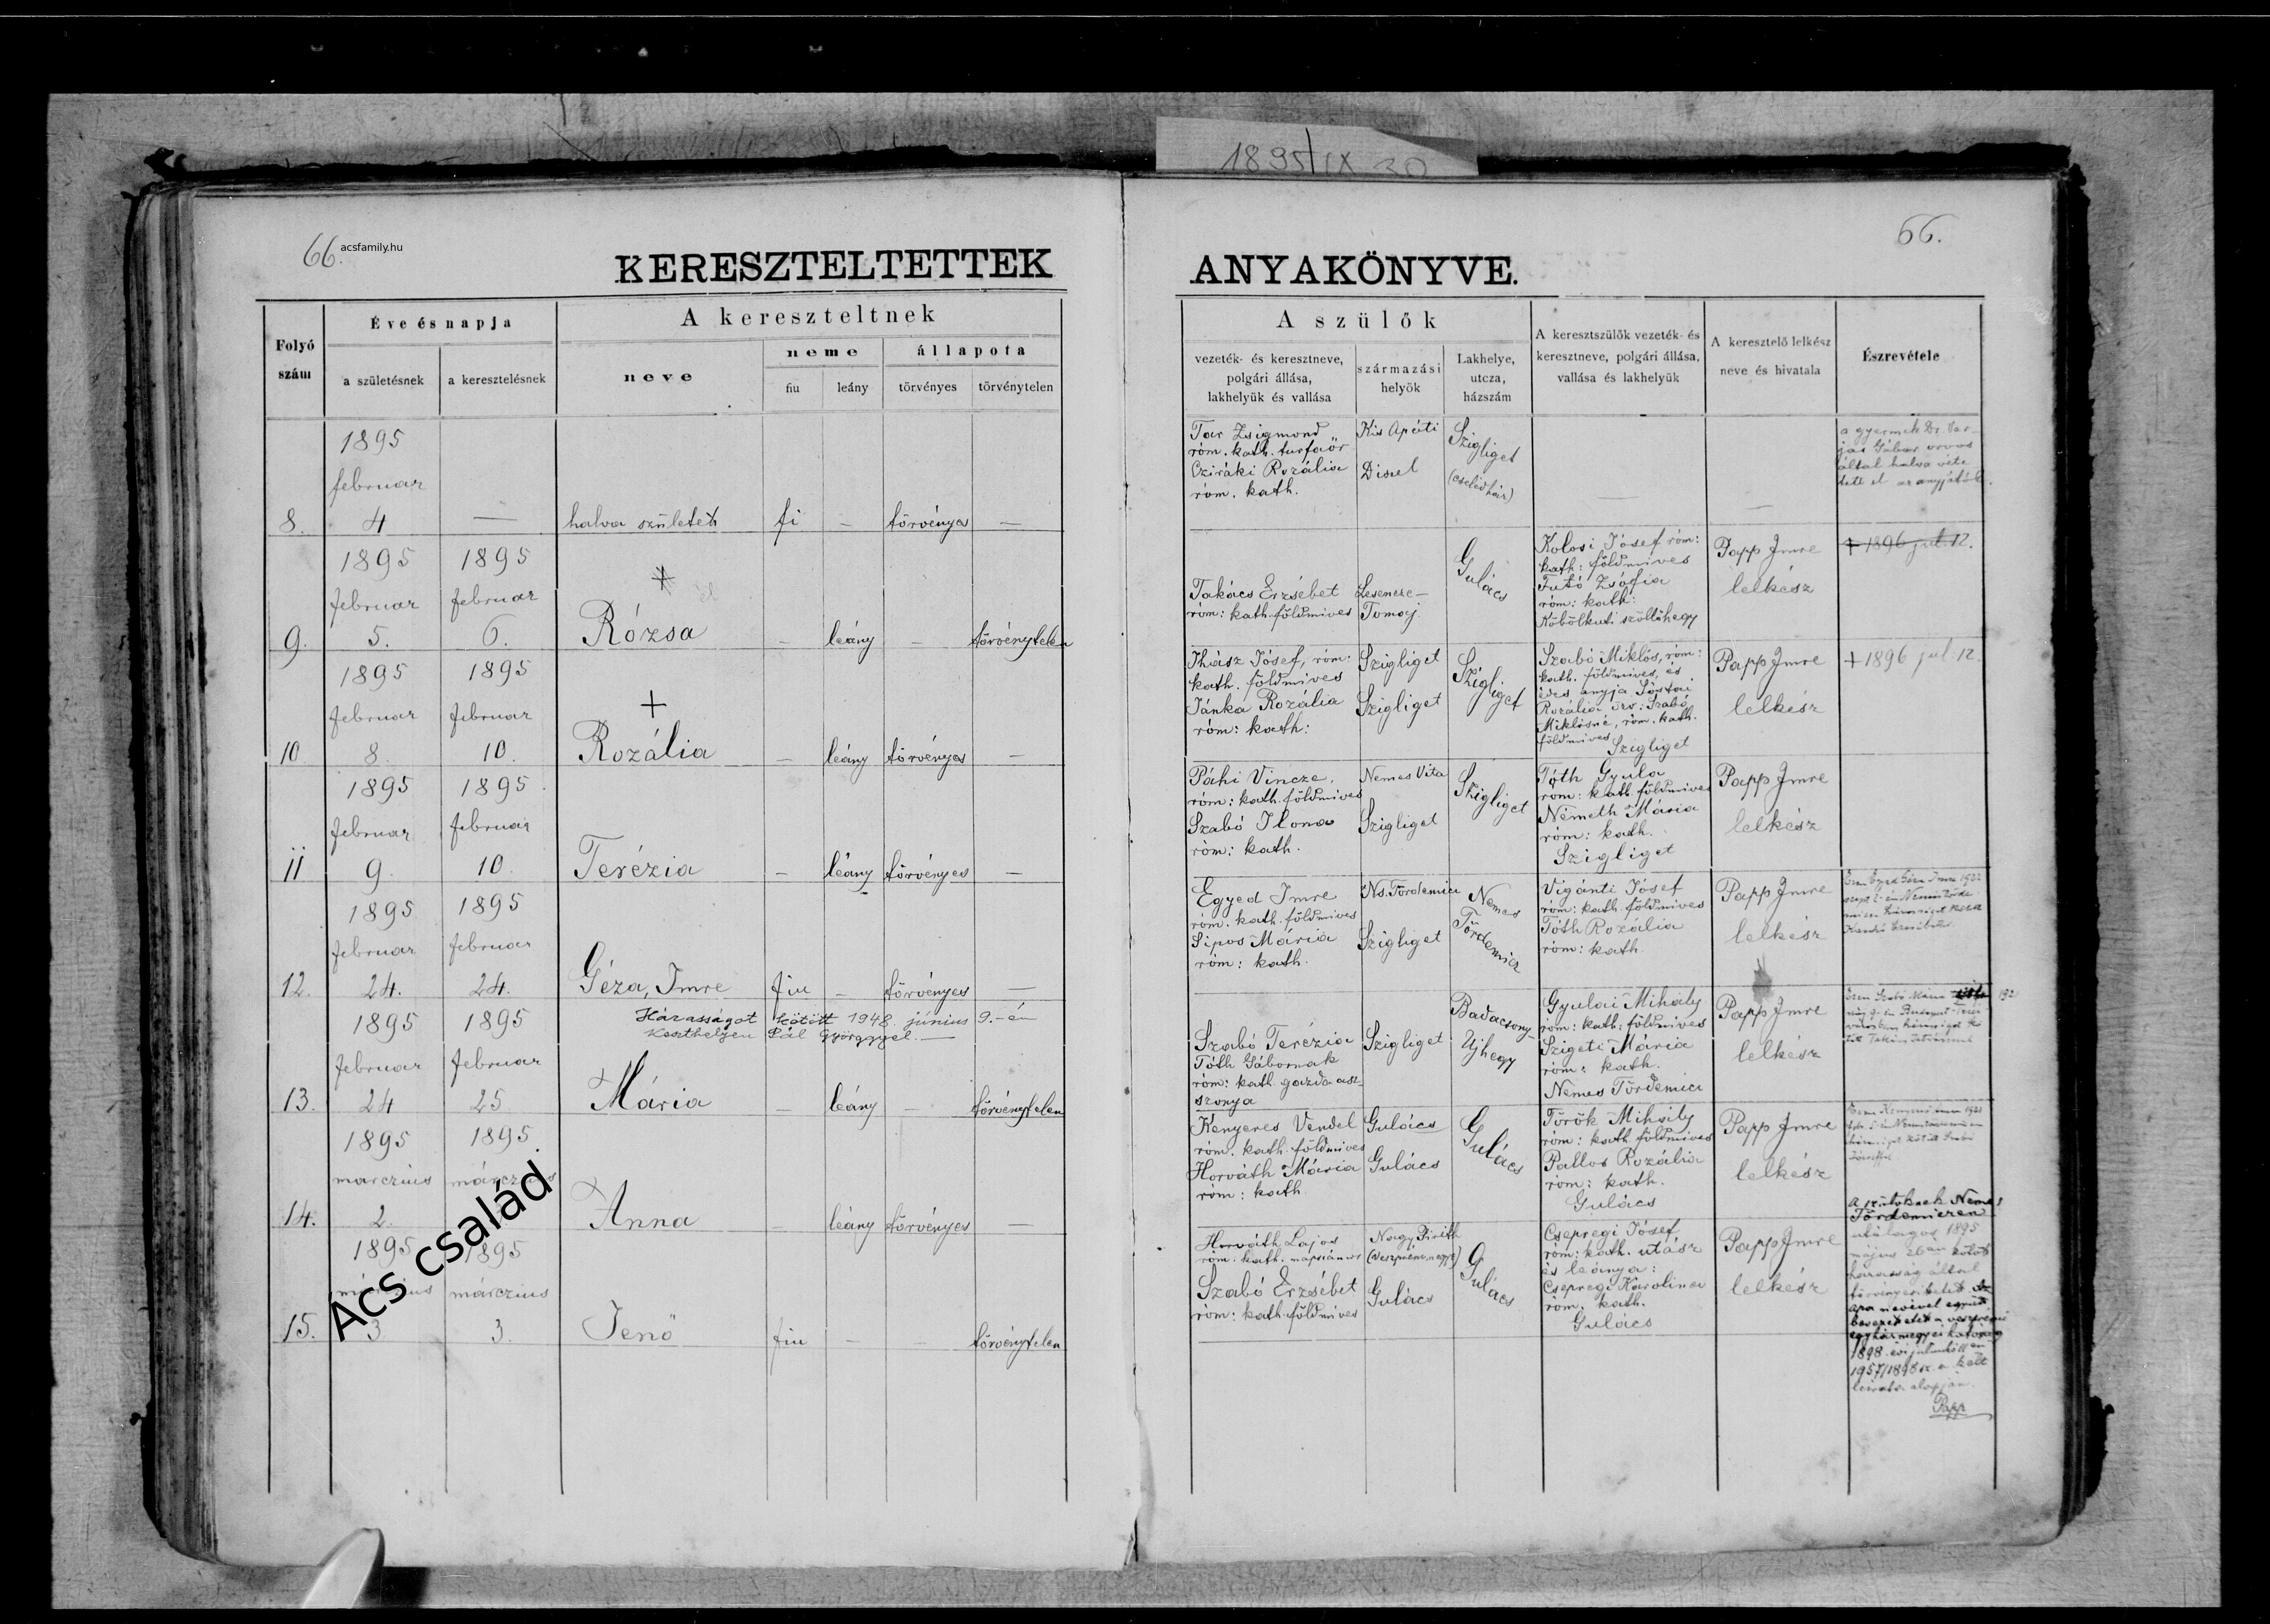 1895/IX 30
66.
acsfamily.hu
66.
KERESZTELTETTEK
ANYAKÖNYVE.
Folyó szám
Éve és napja
a születésnek
a keresztelésnek
A kereszteltnek
neve
neme
fiu
leány
állapota
törvényes
törvénytelen
A szülők
vezeték- és keresztneve,
polgári állása,
lakhelyük és vallása
származási
helyök
Lakhelye,
utcza,
házszám
A keresztszülők vezeték- és
keresztneve, polgári állása,
vallása és lakhelyük
A keresztelő lelkész
neve és hivatala
Észrevétele
1895
februar
8. 4 — halva született fi — törvényes —
Tar Zsigmond
róm. kath. turfaőr
Cziráki Rozália
róm. kath.
Kis Apáti
Diszel
Szigliget
(cselédház)
a gyermek Dr.
által halva
1895 1895
februar februar
9. 5. 6. Rózsa — leány — törvénytelen
Takács Erzsébet
róm: kath. földmives
Lesencze-
Tomaj
Gulács
Kolosi József róm:
kath: földmives
Futó Zsófia
róm: kath:
Köbölkuti szöllőhegy
Papp Imre
lelkész
+ 1896 jul. 12.
1895 1895
februar februar
+
10 8. 10. Rozália — leány törvényes —
Ihász József, róm:
kath. földmives
Jánka Rozália
róm: kath:
Szigliget
Szigliget
Szigliget
Szabó Miklós, róm:
kath. földmives, és
édes anyja
Rozália özv: Szabó
Miklósné, róm. kath.
földmives
Szigliget
Papp Imre
lelkész
+ 1896 jul. 12.
1895 1895
februar februar
11 9. 10. Terézia — leány törvényes —
Páhi Vincze,
róm: kath. földmives
Szabó Ilona
róm: kath.
Nemes Vita
Szigliget
Szigliget
Tóth Gyula
róm: kath. földmives
Németh Mária
róm: kath.
Szigliget
Papp Imre
lelkész
1895 1895
februar februar
12. 24. 24. Géza, Imre fiu — törvényes —
Egyed Imre
róm. kath. földmives
Sipos Mária
róm: kath.
Ns. Tördemicz
Szigliget
Nemes
Tördemicz
Vigánti József
róm: kath. földmives
Tóth Rozália
róm: kath.
Papp Imre
lelkész
1895 1895
Házasságot kötött 1948. június 9.-én
Keszthelyen Pál Györggyel. —
februar februar
13. 24 25 Mária — leány — törvénytelen
Szabó Terézia
Tóth Gábornak
róm: kath gazda asz-
szonya
Szigliget
Badacsony-
Ujhegy
Gyulai Mihály
róm: kath: földmives
Szigeti Mária
róm: kath.
Nemes Tördemici
Papp Imre
lelkész
1895 1895
marczius márczius
14. 2. Anna — leány törvényes —
Kenyeres Vendel
róm. kath. földmives
Horváth Mária
róm: kath.
Gulács
Gulács
Gulács
Török Mihály
róm: kath földmives
Pallos Rozália
róm: kath.
Gulács
Papp Imre
lelkész
1895 1895
márczius márczius
15. 3 3. Jenő fiu — — törvénytelen
Horváth Lajos
róm. kath. napszámos
Szabó Erzsébet
róm: kath. földmives
Nagy Pirith
(Veszprém megye)
Gulács
Gulács
Csepregi József
róm: kath. utász
és leánya:
Csepregi Karolina
róm. kath.
Gulács
Papp Imre
lelkész
A szülőknek Nemes
Tördemiczen
utólagos 1895
május 26án kötött
házasság által
törvényesittetett. Az
apa nevével együtt
bevezettetett a veszprémi
egyházmegyei hatóság
1898. évi
1957/1898 sz. a. kelt
leirata alapján.
Papp
Ács család